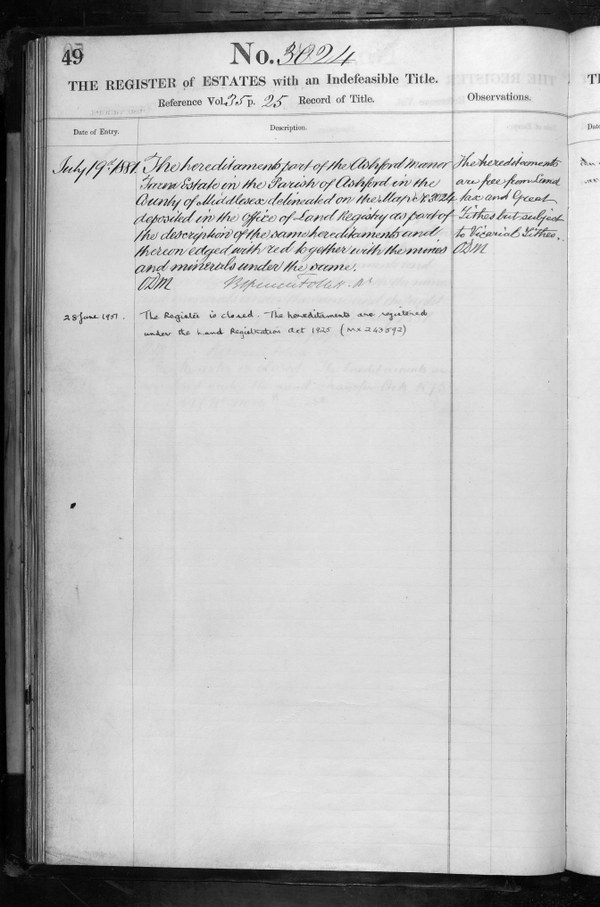 49
No. 3024
THE REGISTER of ESTATES with an Indefeasible Title.
Reference Vol. 35 p. 25 Record of Title.
Observations.
Date of Entry.
Description.
July 19th 1881.
The hereditaments part of the Ashford Manor
Farm Estate in the Parish of Ashford in the
County of Middlesex delineated on the Map No. 3024
deposited in the Office of Land Registry as part of
the description of the same hereditaments and
thereon edged with red together with the mines
and minerals under the same.
The hereditaments
are free from Land
tax and Great
Tithes but subject
to Vicarial Tithes.
28 June 1951.
The Register is closed. The hereditaments are registered
under the Land Registration Act 1925 (MX 243592)